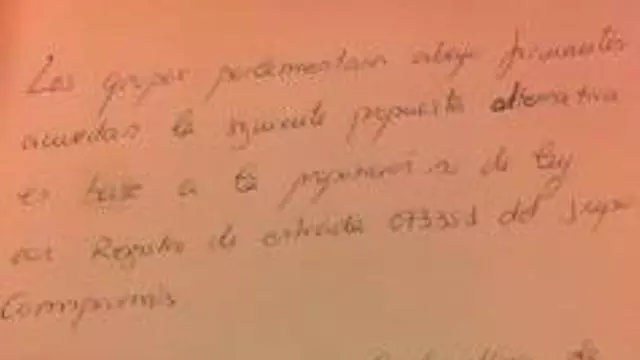 Los grupos parlamentarios abajo firmantes
acuerdan la siguiente propuesta alternativa
en base a la proposición de ley
con Registro de entrada 073351 del grupo
Compromís